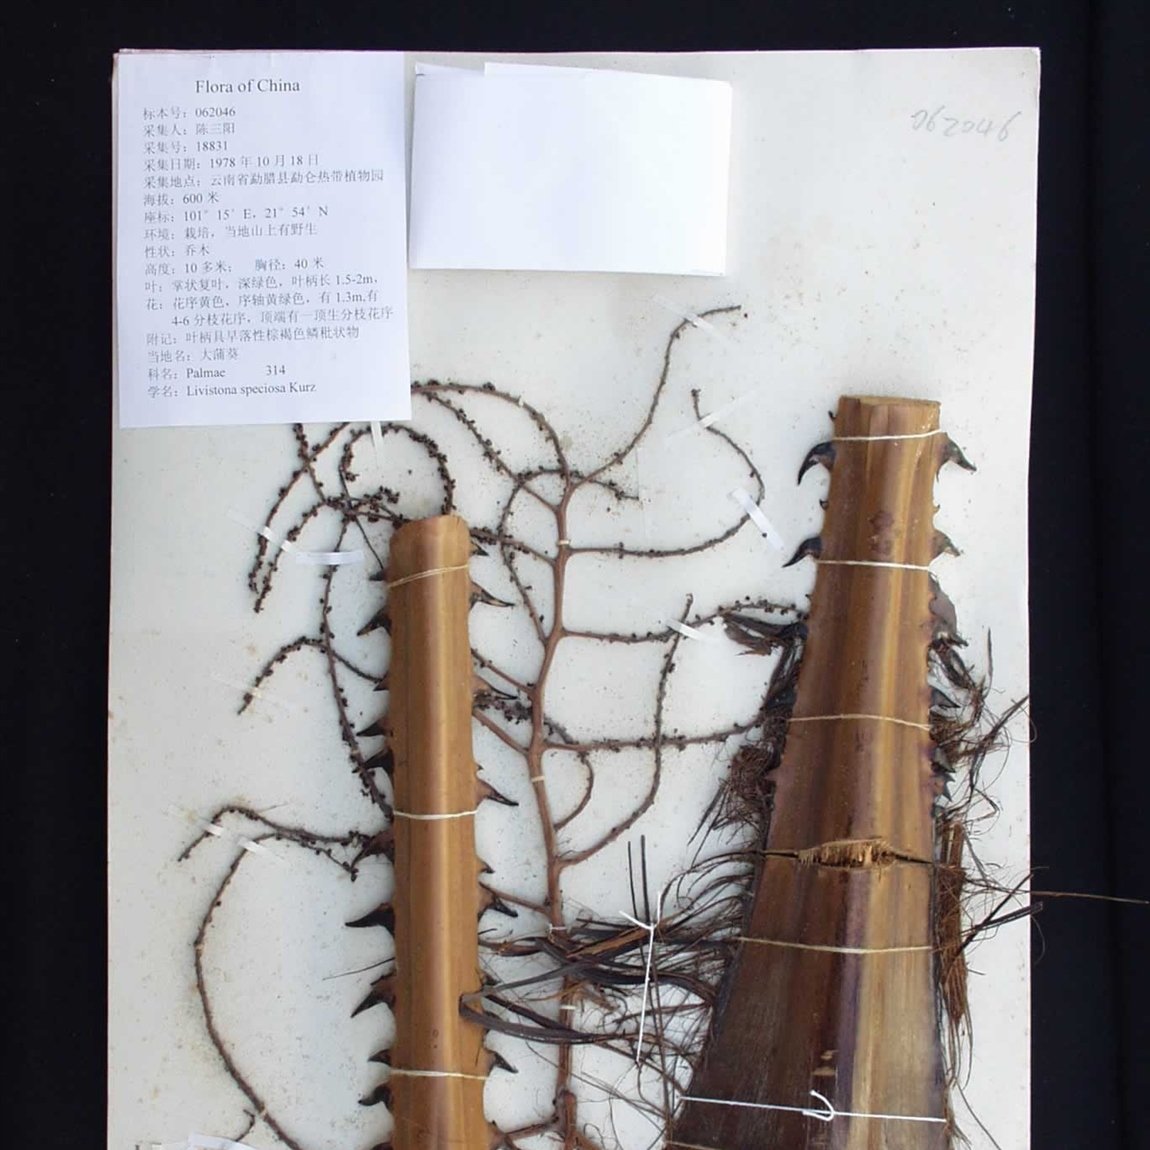 Flora of China
标本号：062046
采集人：陈三阳
采集号：18831
采集日期：1978 年 10 月 18 日
采集地点：云南省勐腊县勐仑热带植物园
海拔：600 米
座标：101° 15′ E，21° 54′ N
环境：栽培，当地山上有野生
性状：乔木
高度：10 多米； 胸径：40 米
叶：掌状复叶，深绿色，叶柄长 1.5-2m，
花：花序黄色，序轴黄绿色，有 1.3m,有
4-6 分枝花序，顶端有一顶生分枝花序
附记：叶柄具早落性棕褐色鳞秕状物
当地名：大蒲葵
科名：Palmae 314
学名：Livistona speciosa Kurz
062046